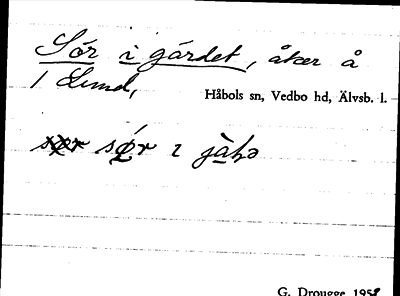 Sör i gärdet, åker å
1 Lund,
Håbols sn, Vedbo hd, Älvsb. l.
sör i
G. Drougge 1958